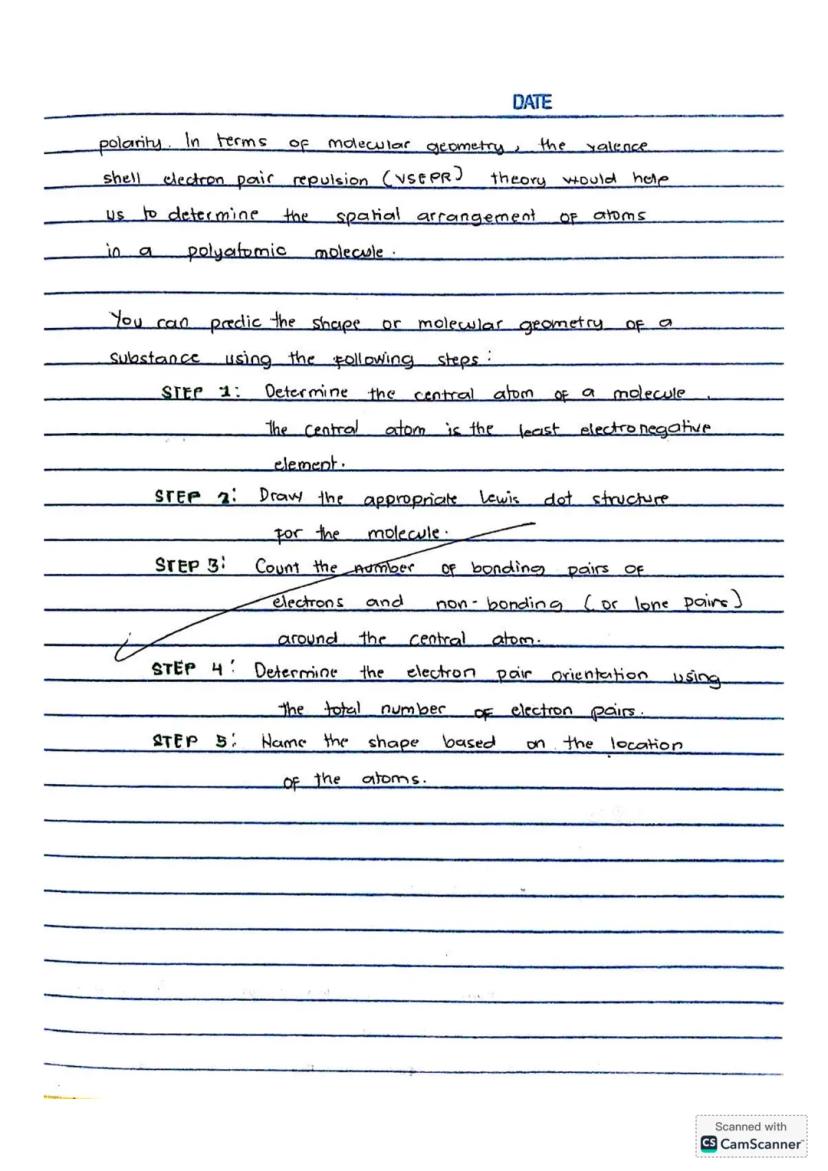 DATE
polarity. In terms of molecular geometry, the valence
shell electron pair repulsion (VSEPR) theory would help
us to determine the spatial arrangement of atoms
in a polyatomic molecule.
You can predic the shape or molecular geometry of a
substance using the following steps:
STEP 1: Determine the central atom of a molecule.
The central atom is the least electronegative
element.
STEP 2: Draw the appropriate Lewis dot structure
for the molecule.
STEP 3: Count the number of bonding pairs of
electrons and non-bonding (or lone pairs)
around the central atom.
STEP 4: Determine the electron pair orientation using
the total number of electron pairs.
STEP 5: Name the shape based on the location
of the atoms.
Scanned with
CS CamScanner